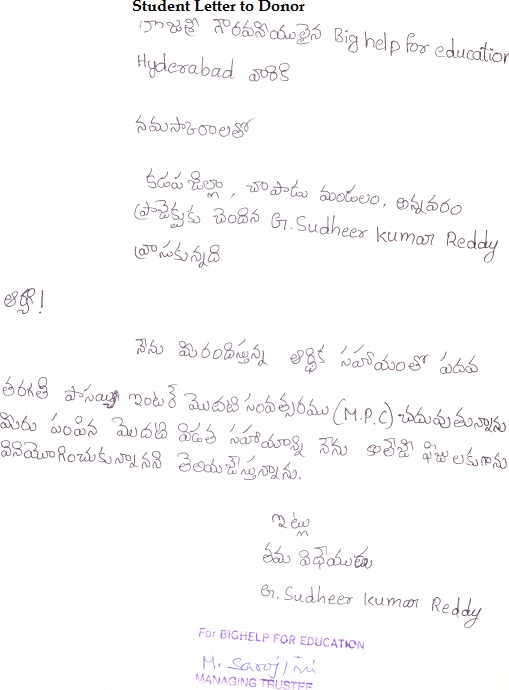 Student Letter to Donor
రాజశ్రీ గౌరవనీయులైన Big help for education
Hyderabad వారికి
నమస్కారాలతో
కడప జిల్లా, చాపాడు మండలం, అన్నవరం
ప్రాజెక్టుకు చెందిన G. Sudheer kumar Reddy
వ్రాసుకున్నది
ఆర్యా!
నేను మీరందిస్తున్న ఆర్థిక సహాయంతో పదవ
తరగతి పాసయ్యి ఇంటర్ మొదటి సంవత్సరము (M.P.C) చదువుతున్నాను
మీరు పంపిన మొదటి విడత సహాయాన్ని నేను కాలేజి ఫీజులకుగాను
వినియోగించుకున్నానని తెలియజేస్తున్నాను.
ఇట్లు
తమ విధేయుడు
G. Sudheer kumar Reddy
For BIGHELP FOR EDUCATION
M. Sarojini
MANAGING TRUSTEE